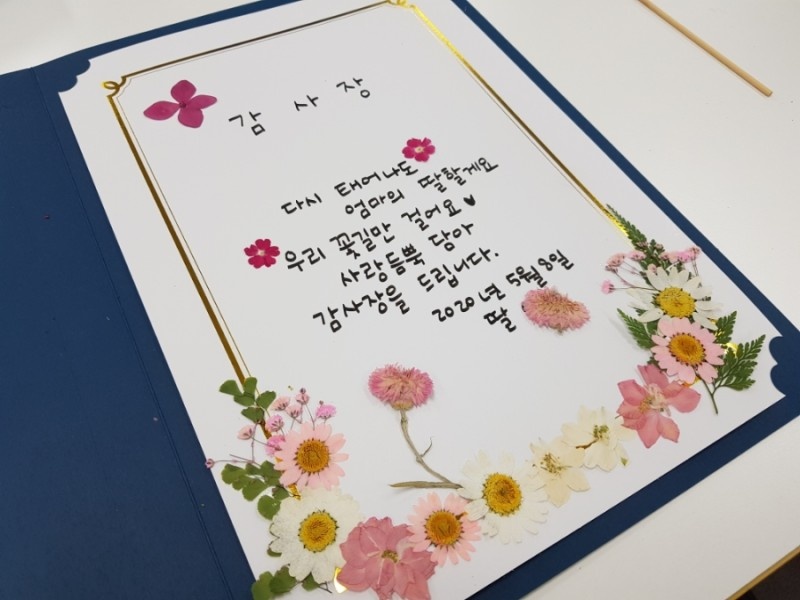 감 사 장
다시 태어나도
엄마의 딸할게요
우리 꽃길만 걸어요♥
사랑듬뿍 담아
감사장을 드립니다.
2020년 5월 8일
딸